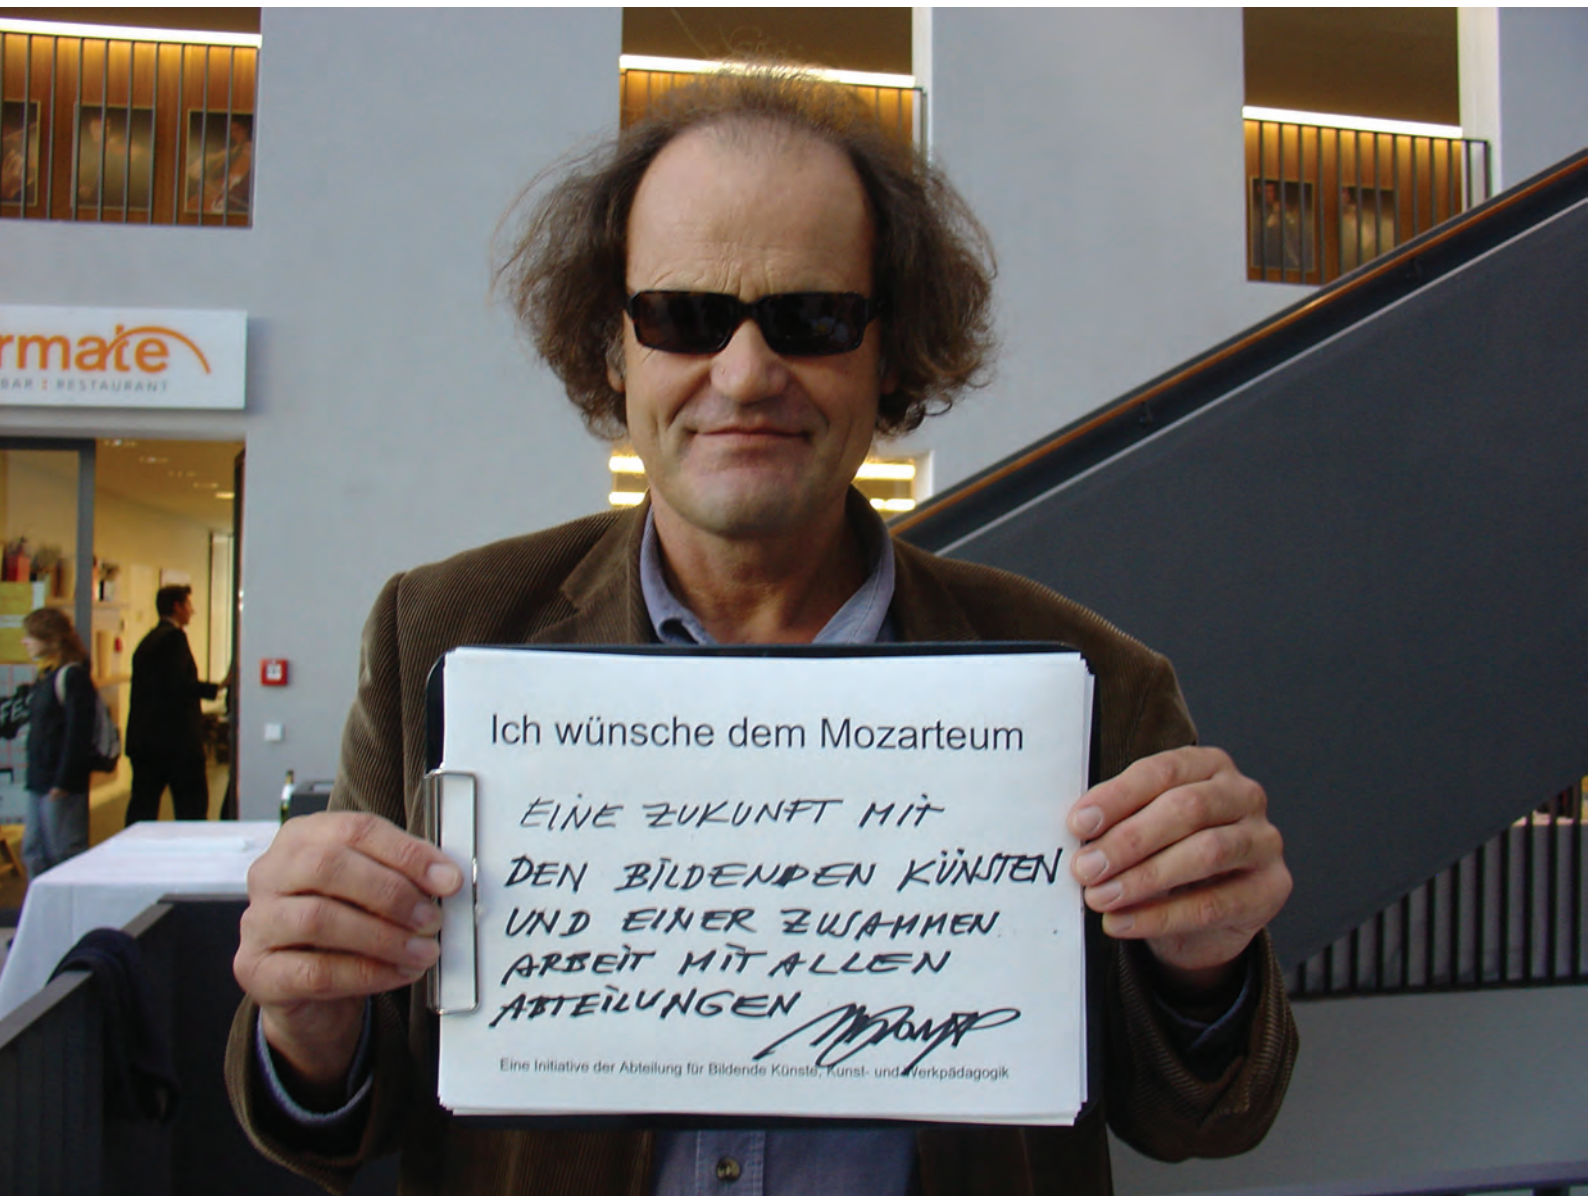 rmate
BAR : RESTAURANT
Ich wünsche dem Mozarteum
EINE ZUKUNFT MIT
DEN BILDENDEN KÜNSTEN
UND EINER ZUSAMMEN
ARBEIT MIT ALLEN
ABTEILUNGEN
Eine Initiative der Abteilung für Bildende Künste, Kunst- und Werkpädagogik